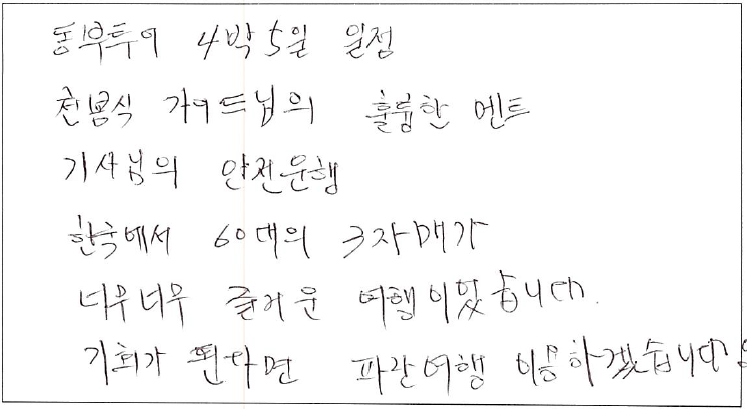 동부투어 4박5일 일정
천봉식 가이드님의 훌륭한 멘트
기사님의 안전운행
한국에서 60대의 3자매가
너무너무 즐거운 여행이었습니다.
기회가 된다면 파란여행 이용하겠습니다